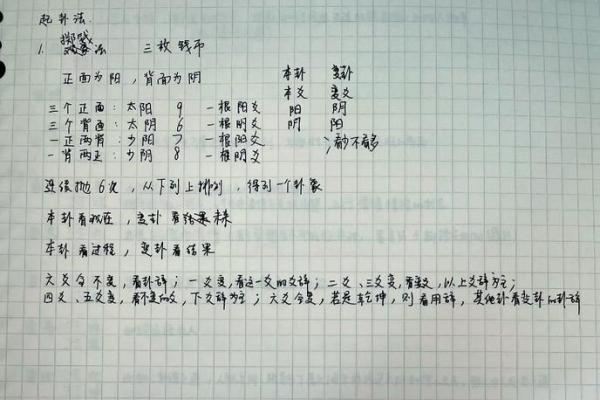 起卦法
1. 掷钱法 三枚钱币
正面为阳，背面为阴 本卦 变卦
本爻 变爻
三个正面：太阳 9 一根阳爻 阳 阴
三个背面：太阴 6 一根阴爻 阴 阳
一正两背：少阳 7 一根阳爻 ；静不变
一背两正：少阴 8 一根阴爻
连续抛6次，从下到上排列，得到一个卦象
本卦看现在，变卦看结果
本卦看过程，变卦看结果
六爻全不变，看卦辞；一爻变，看这一爻的爻辞；二爻、三爻变，看变爻，以上爻辞为主；
四爻、五爻变，看不变的爻，下爻辞为主；六爻全变，若是乾坤，则看用辞，其他卦看变卦的卦辞